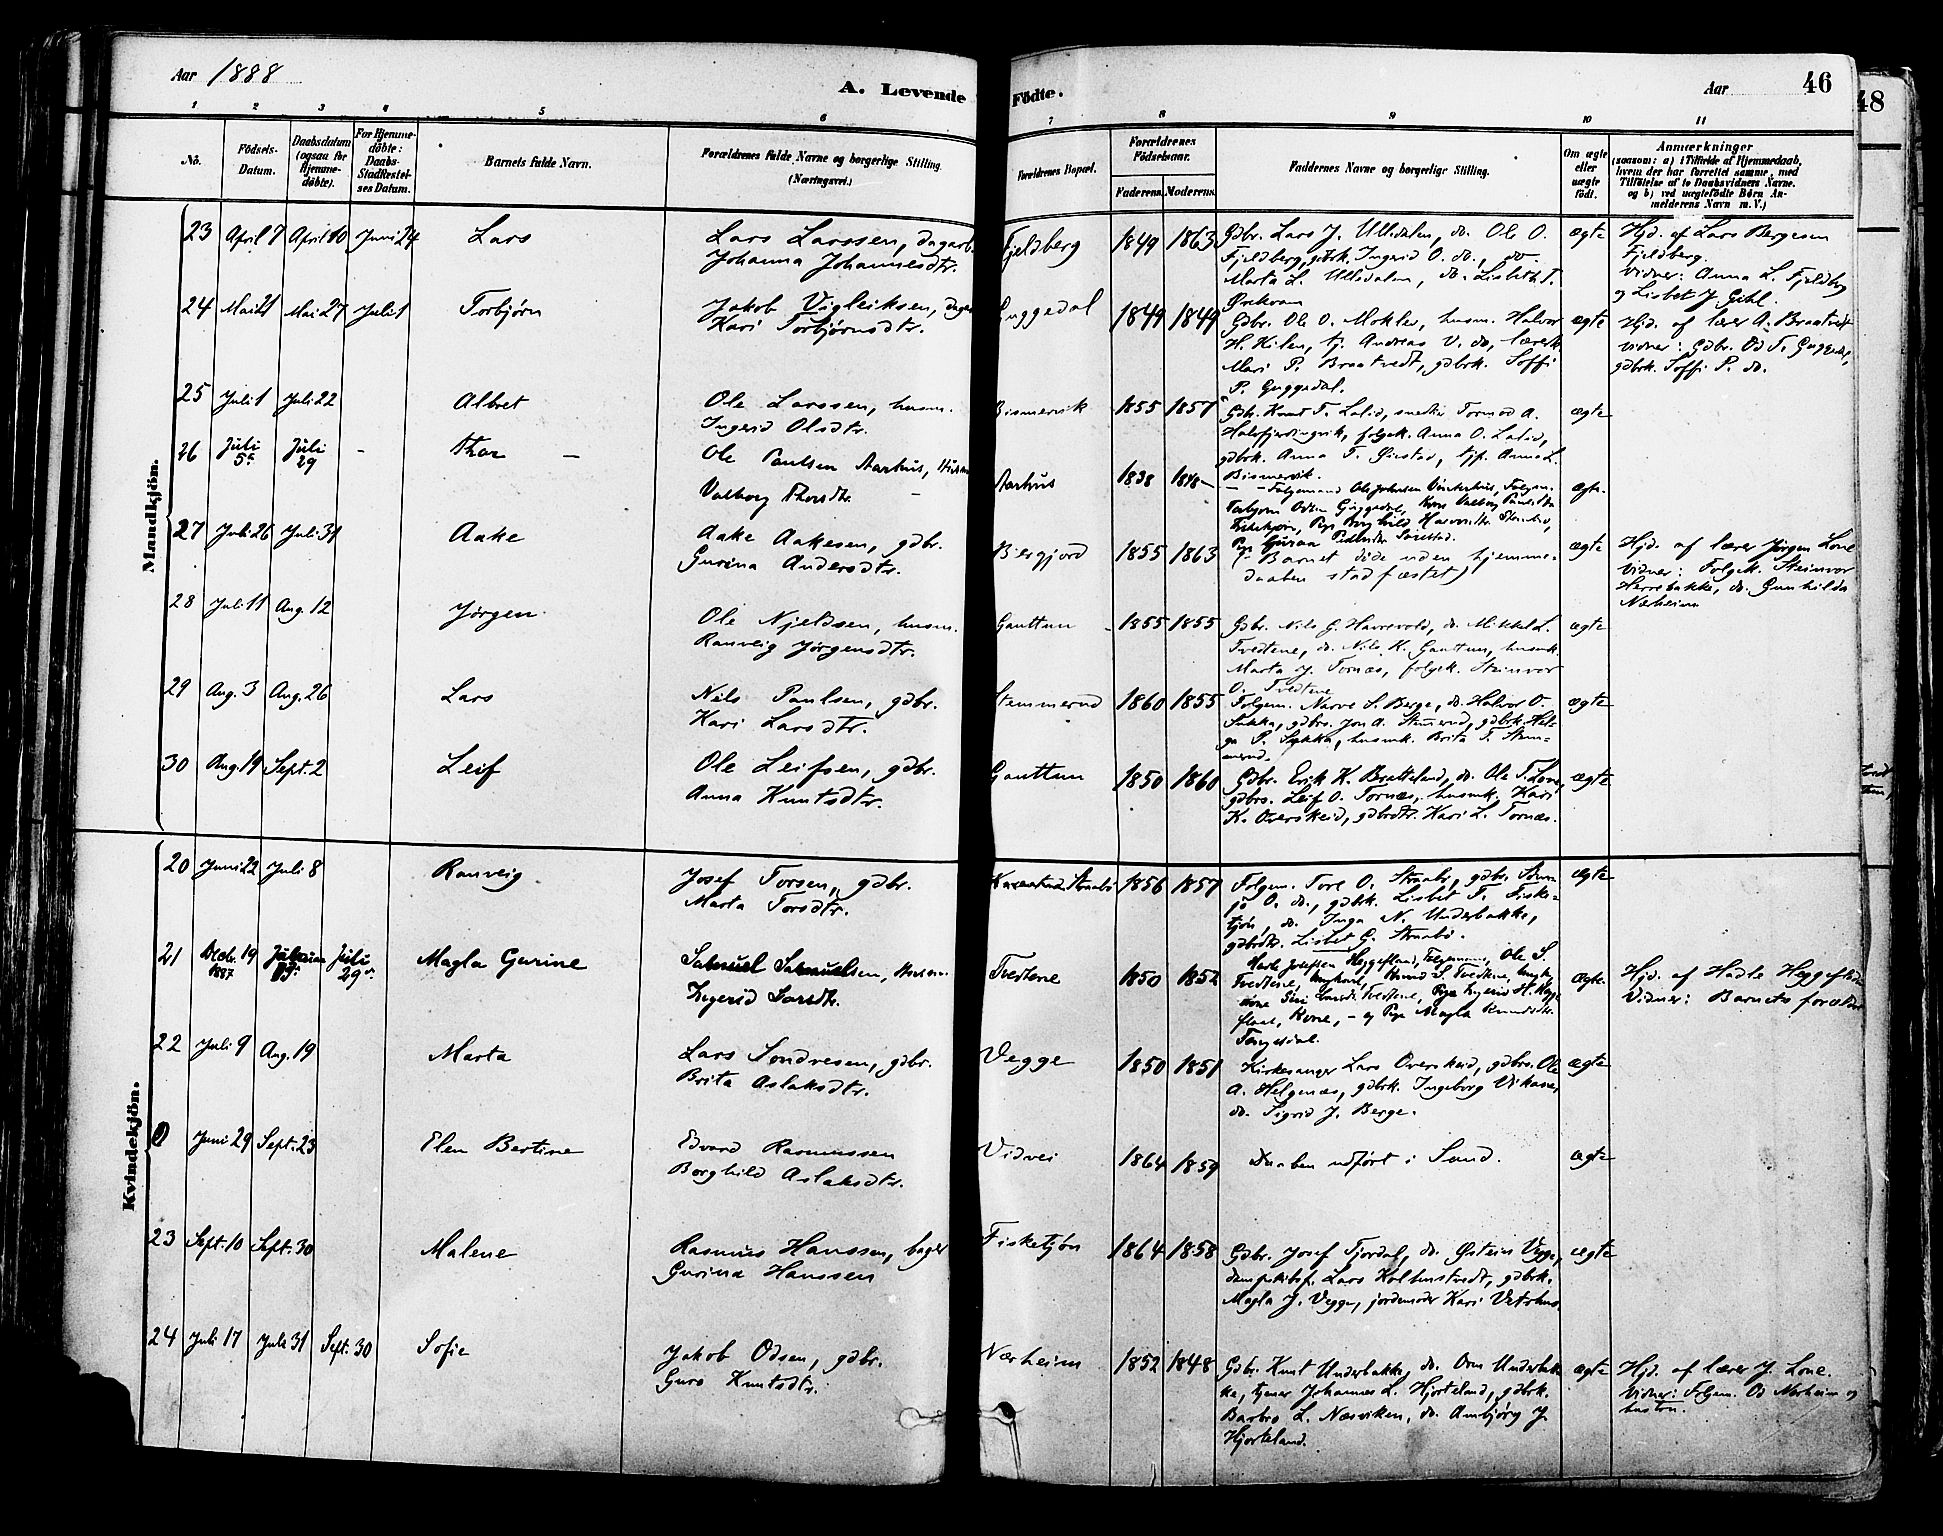 Aar 1888
A. Levende Födte.
Aar
46
48
1 2 3 4 5 6 7 8 9 10 11
No.
Födsels-Datum.
Daabsdatum (ogsaa for Hjemme-døbte).
For Hjemme-døbte: Daabs-Stadfæstel-ses Datum.
Barnets fulde Navn.
Forældrenes fulde Navne og borgerlige Stilling. (Næringsvei.)
Forældrenes Bopæl.
Forældrenes Fødselsaar.
Faderens. Moderens.
Faddernes Navne og borgerlige Stilling.
Om ægte eller uægte født.
Anmærkninger
(saasom: a) i Tilfælde af Hjemmedaab, hvem der har forrettet samme, med Tilføielse af to Daabsvidners Navne. og b) ved uægtefødte Børn An-melderens Navn m. V.)
Mandkjön.
23 April 7 April 10 Juni 24 Lars
Lars Larssen, dagarb.
Johanna Johannesdtr.
Fjeldberg 1849 1863
Gdbr. Lars J. Ulledalen, do. Ole O.
Fjeldberg, gdbrk. Ingerid O. do., do.
Marta L. Ulledalen, do. Lisbeth T.
Ørekvam
ægte
Hjd. af Lars Bergesen
Fjeldberg.
Vidner: Anna L. Fjeldberg
og Lisbet J. Gihl.
24 Mai 21 Mai 27 Juli 1 Torbjørn
Jakob Vigleiksen, dagar
Kari Torbjørnsdtr.
Guggedal 1849 1849
Gdbr. Ole O. Moklev, husm. Halvor
H. Kilen, tj. Andreas V. do, lærerk.
Mari P. Braatvedt, gdbrk. Soffi
P. Guggedal.
ægte
Hjd. af lærer A. Braatvedt
Vidner: Gdbr. Od T. Guggedal,
gdbrk. Soffi P. do.
25 Juli 1 Juli 22 Albret
Ole Larssen, husm.
Ingerid Olsdtr.
Bismervik 1855 1857
Gdbr. Knut T. Lalid, snedker Tormod A.
Halsfjordingvik, folgek. Anna O. Lalid,
gdbrk. Anna T. Ørestad, tjp. Anna L.
Bismervik.
ægte
26 Juli 5te Juli 29 - Thor -
Ole Paulsen Aarhus, Husm
Valborg Thorsdtr. -
Aarhus 1838 1848 -
- Folgemand Ole Johnsen Vinterhus, Folgem.
Torbjorn Odsen Guggedal, Kone Valborg Paulsdtr
Fisketjøn, Pige Borghild
Pige Guroa Pedersdtr
ægte.
27 Juli 26 Juli 31 Aake
Aake Aakesen, gdbr.
Gurina Andersdtr.
Birgjord 1855 1863
(- Barnet døde uden hjemme-
daaben stadfæstet)
ægte
Hjd. af lærer Jørgen Lone
Vidner: Folgek. Steinvor
Herrebakke, do. Gunhilda
Nærheim
28 Juli 11 Aug. 12 Jørgen
Ole Njeldsen, husm.
Ranveig Jørgensdtr.
Gauttun - 1855 1855
Gdbr. Nils G. Havrevold, do. Mikkel L.
Tvedtene, do. Nils K. Gauttun, husmk.
Marta J. Tornæs, folgek. Steinvor
O. Tvedtene
ægte
29 Aug. 3 Aug. 26 Lars
Nils Paulsen, gdbr.
Kari Larsdtr.
Stemmerud 1860 1855
Folgem. Narve S. Berge, do. Halvor O.
Sukka, gdbrs. Jon A. Stemrud, gdbrk. Hel-
ga P. Sukka, husmk. Brita T. Stem-
merud.
ægte
30 Aug. 19 Sept. 2 Leif
Ole Leifsen, gdbr.
Anna Knutsdtr.
Gauttun 1850 1860
Gdbr. Erik K. Bratteland, do. Ole T. Lone,
gdbrs. Leif O. Tornæs, husmk. Kari
K. Overskeid, gdbrdtr. Kari L. Tornæs.
ægte
Kvindekjön.
20 Juni 22 Juli 8 Ranveig
Josef Torsen, gdbr.
Marta Torsdtr.
Straabø 1856 1857
Folgem. Tore O. Straabø, gdbr. Bun-
jo O. do., gdbrk. Lisbet T. Fiske-
tjøn, do. Inga N. Underbakke,
gdbrdtr. Lisbet G. Straabø.
ægte
21 Decbr. 19 1887 Juli 29de Magla Gurine
Samuel Samuelsen, Husm
Ingerid Larsdtr.
Tvedtene 1850 1852
Hadle Josefsen Heggefland, Folgemand, Ole S.
Tvedtene, Ungkarl, Knud S. Tvedtene, Ungk,
Kone Siri Larsdt. Tvedtene, Pige Ingerid H. Hegge
fland, Kone, - og Pige Magla Knudsdtr.
Tangedal.
ægte.
Hjd. af Hadle Heggefland
Vidner: Barnets forældre
22 Juli 9 Aug. 19 Marta
Lars Sondresen, gdbr.
Brita Aslaksdtr.
Vegge 1850 1851
Kirkesanger Lars Overskeid, gdbrs. Ole
A. Helgenæs, gdbrk. Ingeborg Vikane,
do. Sigrid J. Berge.
ægte
0 Juni 29 Sept. 23 Elen Bertine
Edvard Rasmussen
Borghild Aslaksdtr.
Vidvei 1864 1859
Daaben udført i Sand.
ægte
23 Sept. 10 Sept. 30 Malene
Rasmus Hanssen, bager
Gurina Hanssen
Fisketjøn 1864 1858
Gdbr. Josef Fjordal, do. Østein Vegge,
dampskibsf. Lars Kolbenstvedt, gdbrk.
Magla J. Vegge, jordemoder Kari Vetrhus.
ægte
24 Juli 17 Juli 31 Sept. 30 Sofie
Jakob Odsen, gdbr.
Guro Knutsdtr.
Nærheim 1852 1848
Gdbr. Knut Underbakke, do. Orm Underbak-
ke, tjener Johannes L. Hjorteland, gdbrk.
Barbro L. Næsviken, do. Ambjørg J.
Hjorteland.
ægte
Hjd. af lærer J. Lone.
Vidner: Folgem. Od Nærheim og
hustru.